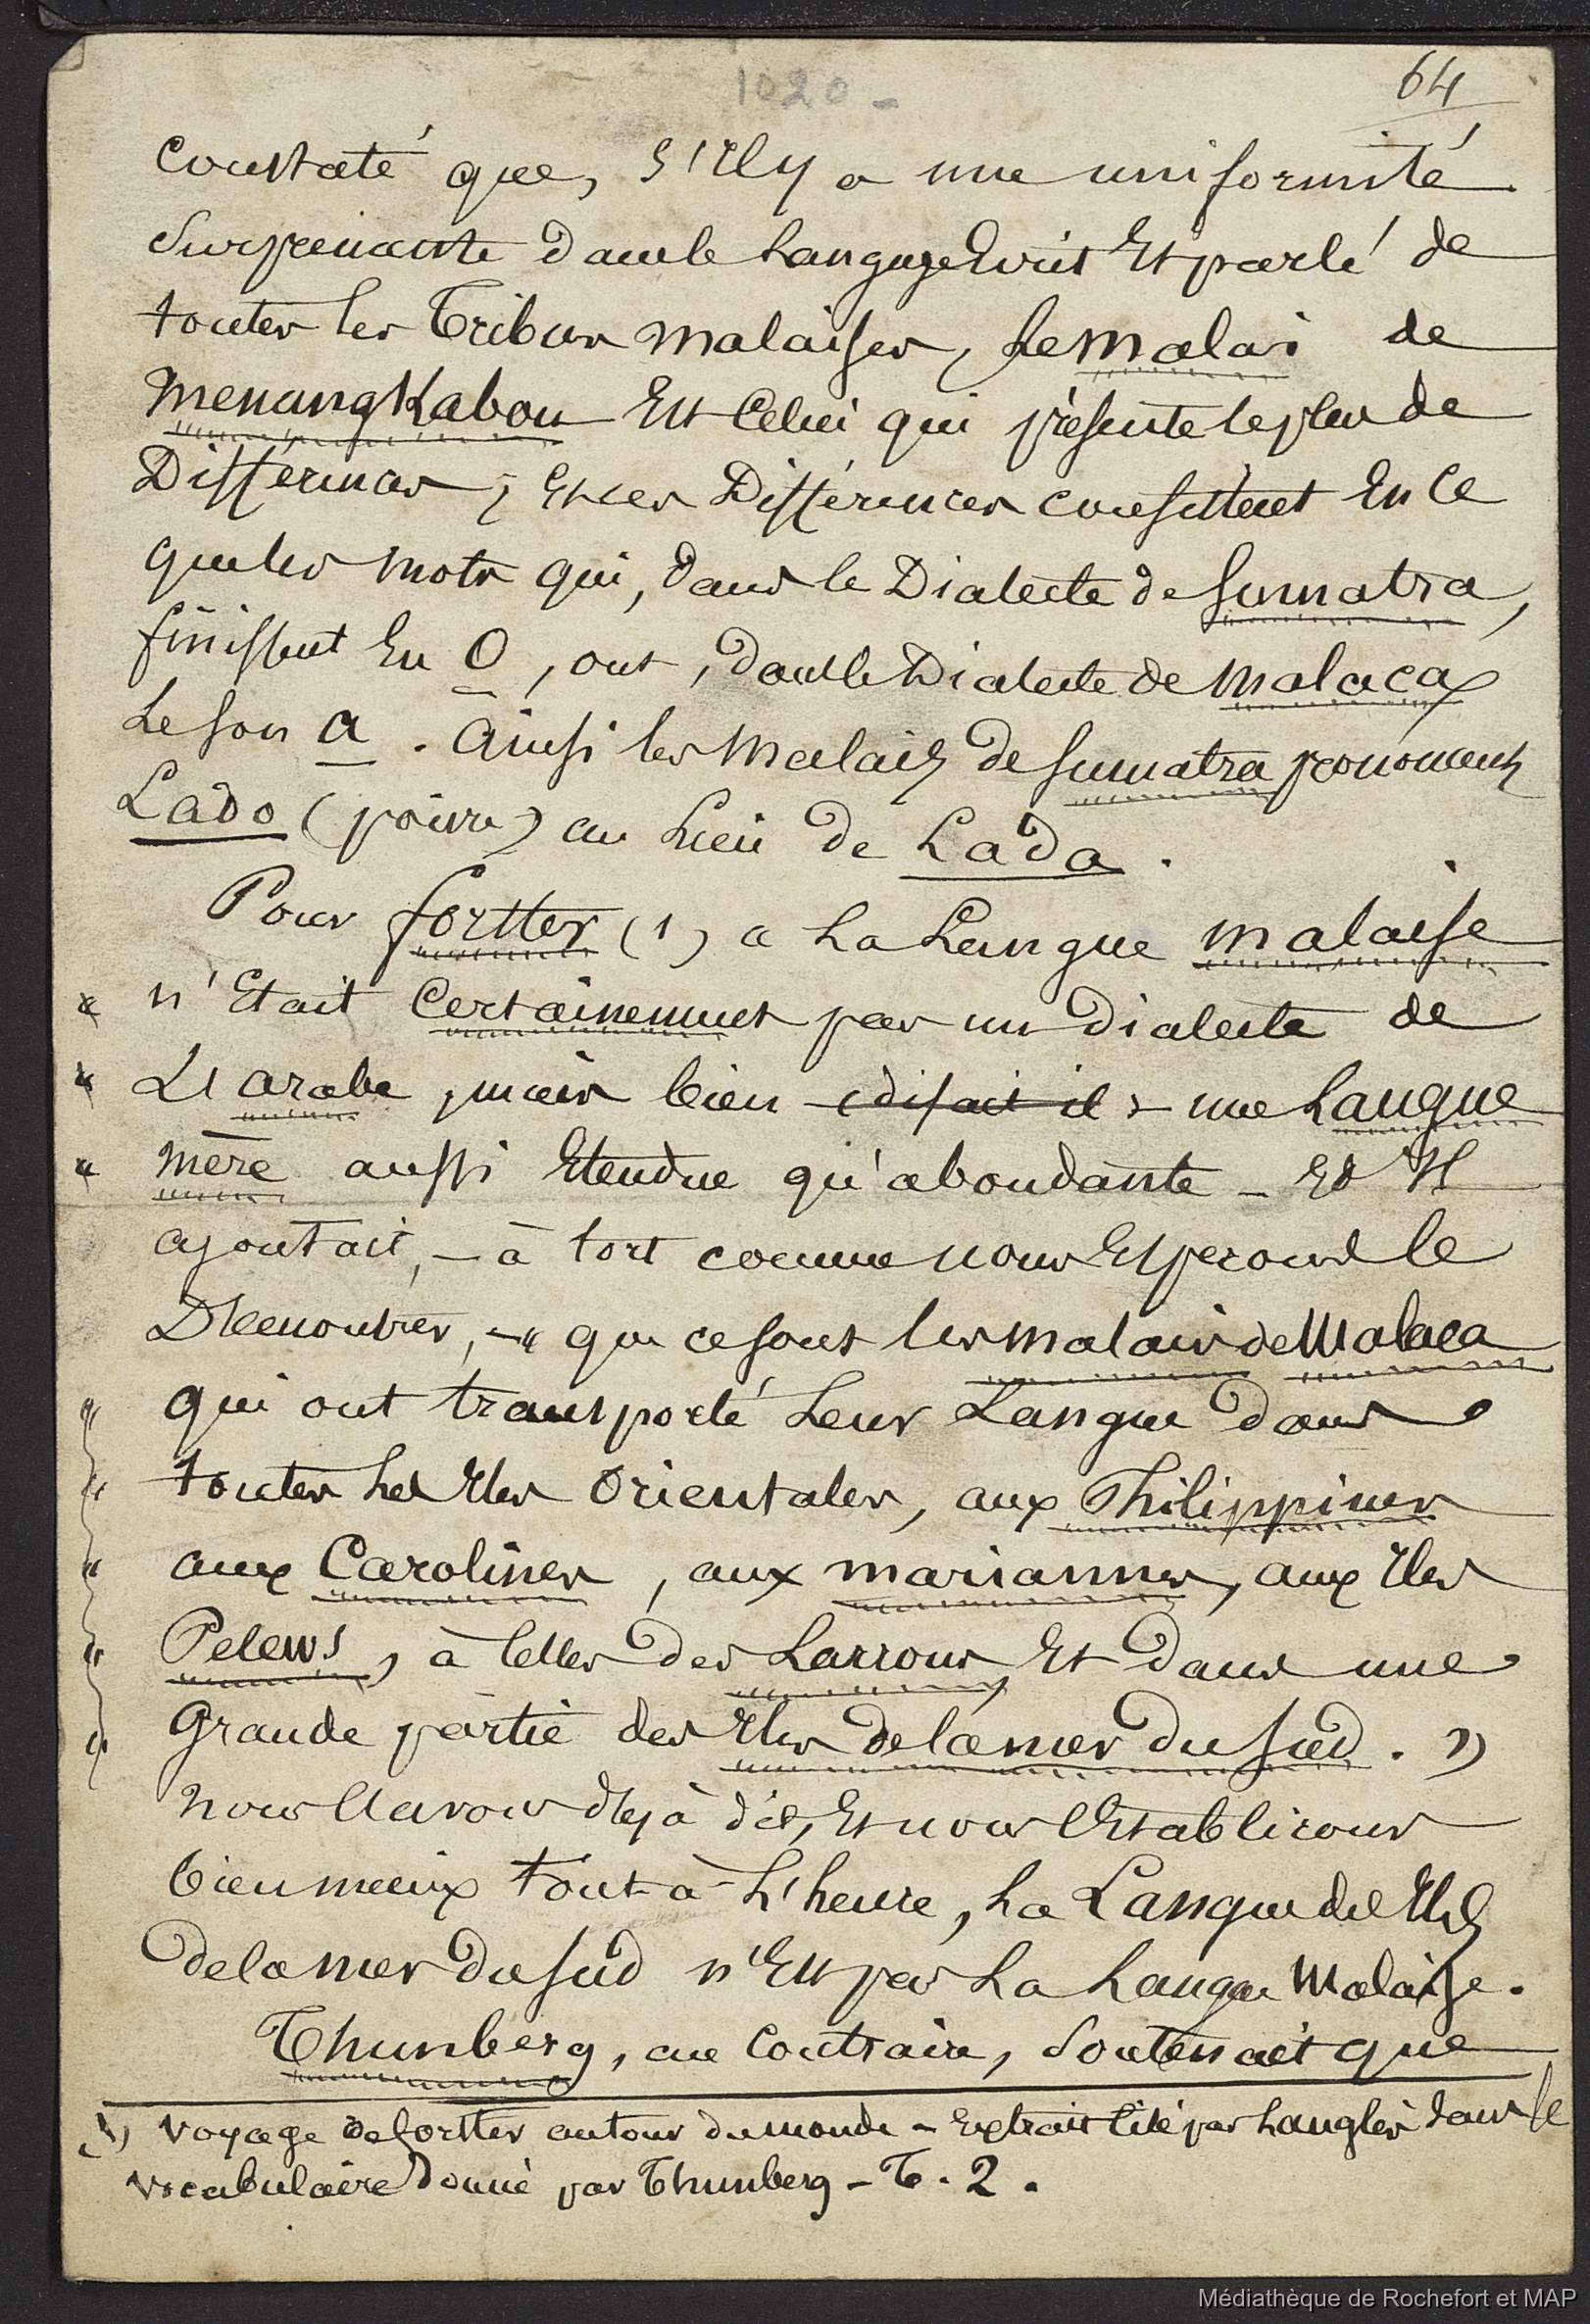 1020 -
64
constaté que, s'il y a une uniformité
surprenante dans le langage Ecrit Et parlé de
toutes les Tribus malaises, le malai de
menangkabou Est celui qui présente le plus de
Différences ; Et ces Différences consistent En ce
que les mots qui, dans le Dialecte de Sumatra,
finissent En O, ont, dans le Dialecte de malaca,
Le son a. Ainsi les malais de Sumatra prononcent
Lado (poivre) au lieu de Lada.
Pour forster (1) « La Langue malaise
« n'Etait certainement pas un Dialecte de
« L'arabe, mais bien (disait il) une Langue
« mère aussi Etendue qu'abondante - Et Il
ajoutait, - à tort comme nous Esperons le
Démontrer, - « que ce sont les malais de Malaca
« qui ont transporté leur Langue dans
« toutes les Iles Orientales, aux Philippines
« aux Carolines, aux mariannes, aux Iles
« Pelews, à celles des Larrons, Et dans une
« grande partie des Iles de la mer du Sud. »
nous l'avons déjà dit, Et nous l'Etablirons
bien mieux tout-à-l'heure, la Langue des Iles
de la mer du Sud n'Est pas la Langue Malaise.
Thunberg, au contraire, soutenait que
(1) Voyage de forster autour du monde - Extrait cité par Langlès dans le
vocabulaire donné par Thunberg - T. 2.
Médiathèque de Rochefort et MAP